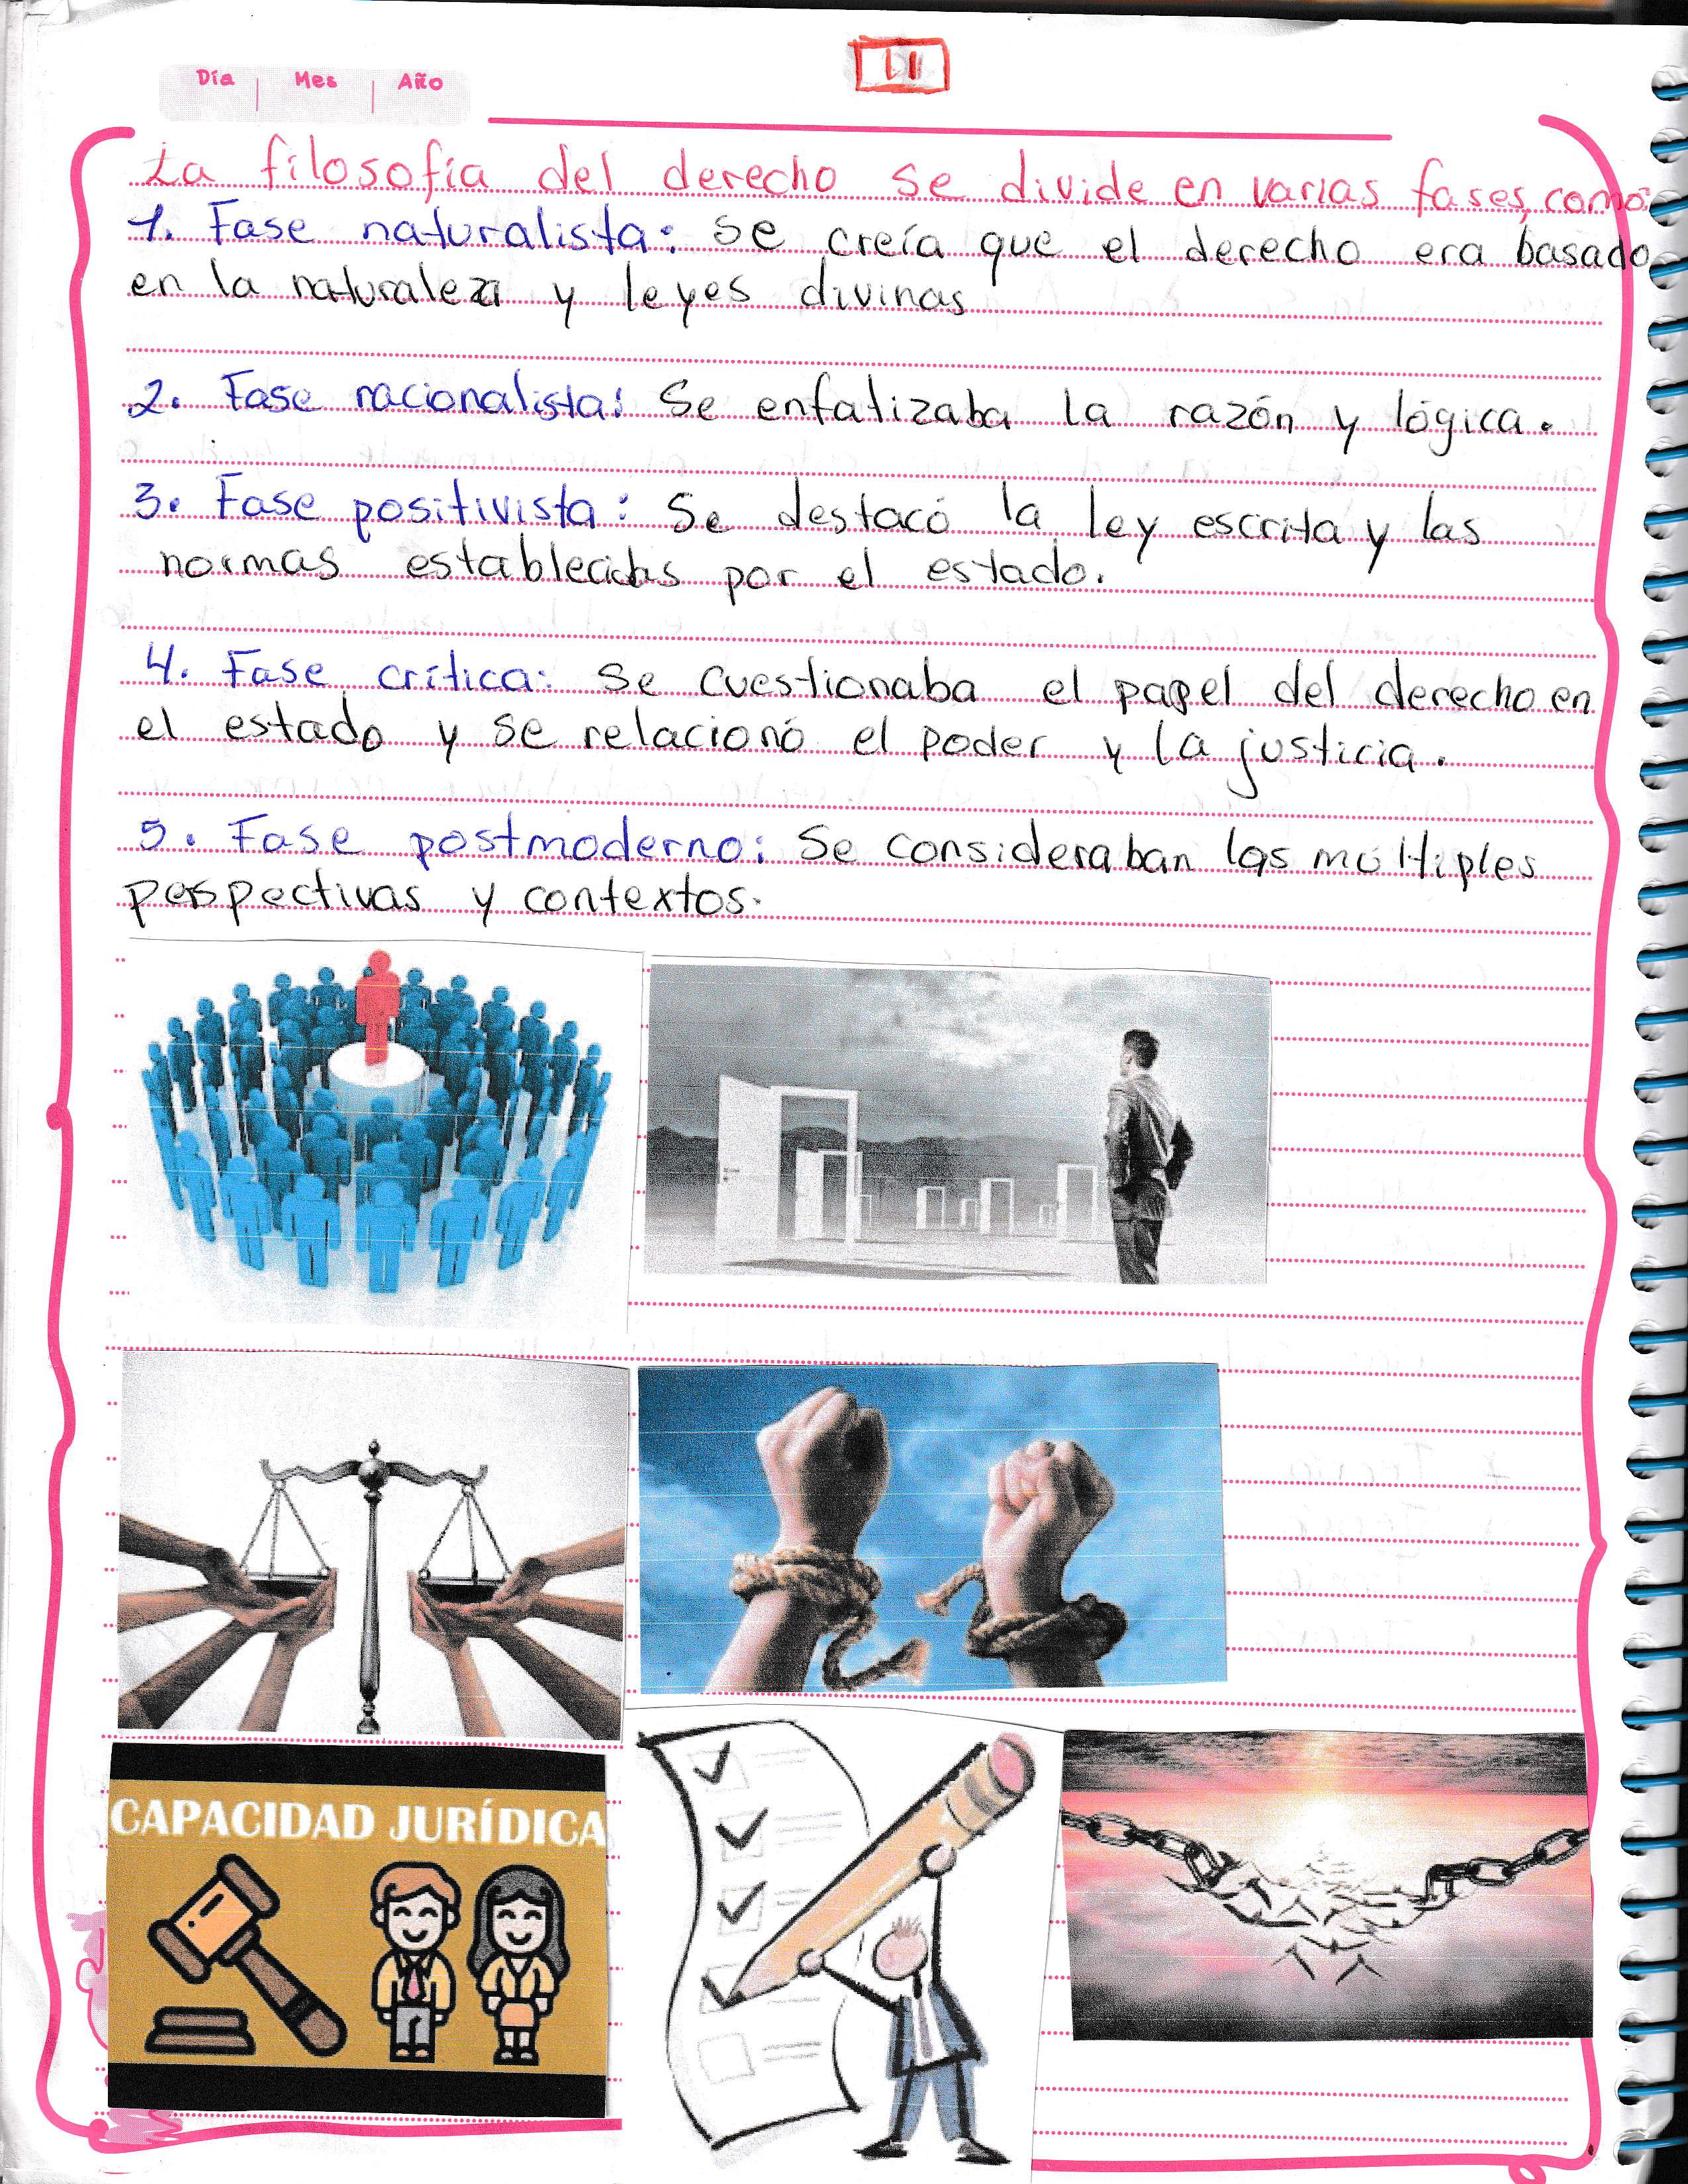 11
Día Mes Año
La filosofía del derecho se divide en varias fases, como:
1. Fase naturalista: se creía que el derecho era basado
en la naturaleza y leyes divinas
2. Fase racionalista: Se enfatizaba la razón y lógica.
3. Fase positivista: Se destacó la ley escrita y las
normas establecidas por el estado.
4. Fase crítica: Se cuestionaba el papel del derecho en
el estado y se relacionó el poder y la justicia.
5. Fase postmoderno: Se consideraban las múltiples
perspectivas y contextos.
CAPACIDAD JURÍDICA